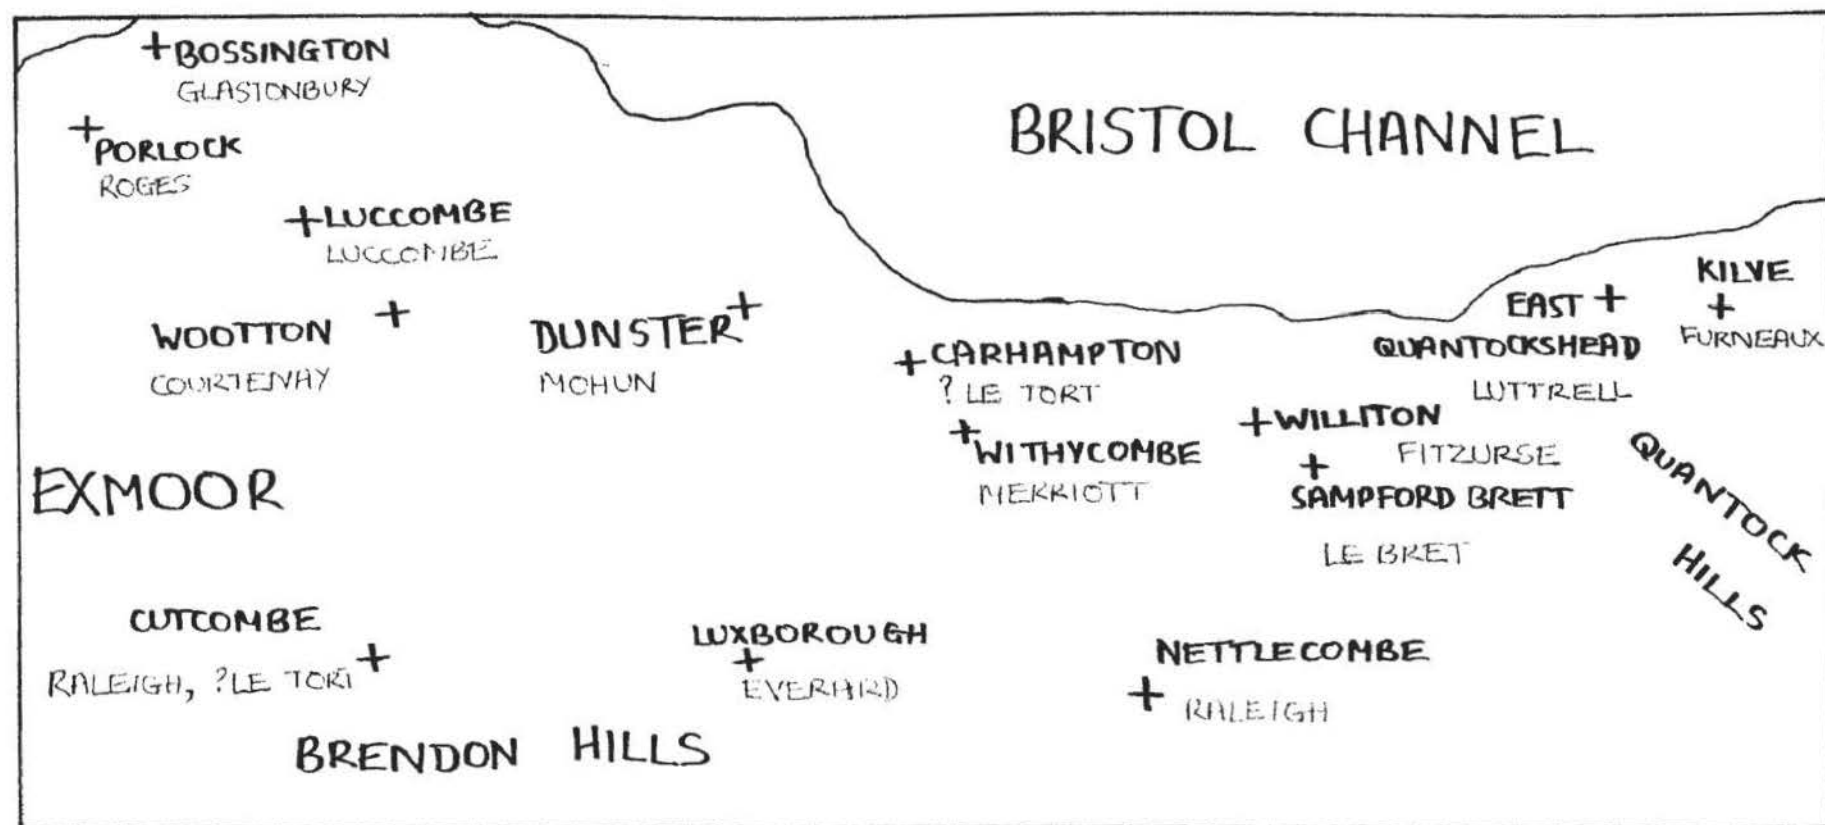 +BOSSINGTON
GLASTONBURY
BRISTOL CHANNEL
+PORLOCK
ROGES
+LUCCOMBE
LUCCOMBE
WOOTTON +
COURTENAY
DUNSTER+
MOHUN
+CARHAMPTON
? LE TORT
+WITHYCOMBE
MERRIOTT
EAST +
QUANTOCKSHEAD
LUTTRELL
KILVE
+
FURNEAUX
+WILLITON
FITZURSE
+
SAMPFORD BRETT
LE BRET
QUANTOCK
HILLS
EXMOOR
CUTCOMBE
RALEIGH, ?LE TORT +
LUXBOROUGH
+
EVERARD
NETTLECOMBE
+ RALEIGH
BRENDON HILLS